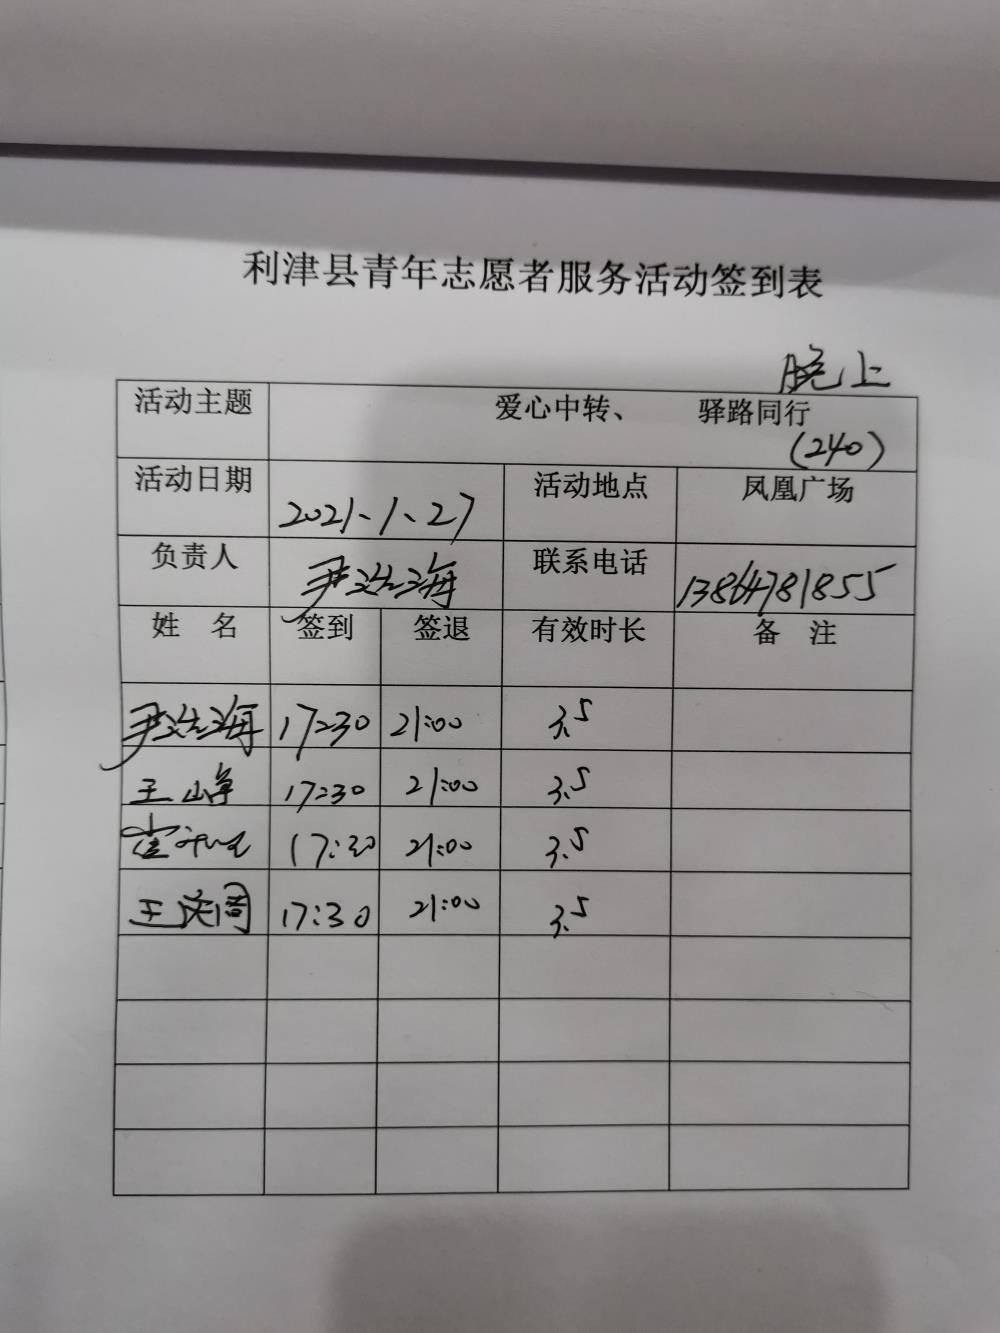 利津县青年志愿者服务活动签到表
晚上
活动主题 爱心中转、 驿路同行
(240)
活动日期 2021、1、27 活动地点 凤凰广场
负责人 尹浩海 联系电话 13864781855
姓 名 签到 签退 有效时长 备 注
尹浩海 17:30 21:00 3.5
王峥 17:30 21:00 3.5
17:30 21:00 3.5
王 17:30 21:00 3.5